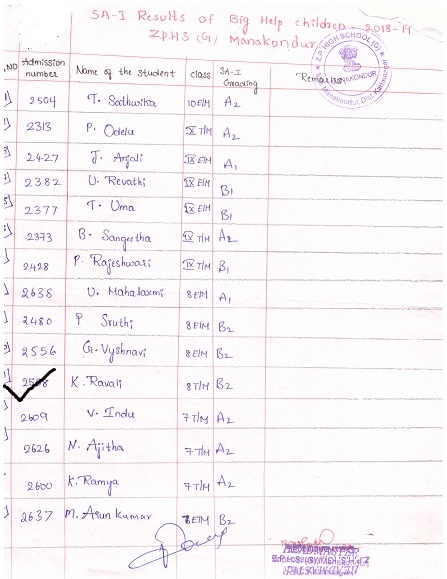 SA-I Results of Big Help children - 2018-19
ZPHS (G), Manakondur
S.NO Admission number Name of the student class SA-I Grading Remarks
1) 2504 T. Sathwika 10 E/M A2
2313 P. Odelu X T/M A2
2427 J. Anjali IX E/M A1
2382 U. Revathi IX E/M B1
2377 T. Uma IX E/M B1
2373 B. Sangeetha IX T/M A2
2428 P. Rajeshwari IX T/M B1
2638 U. Mahalaxmi 8 E/M A1
2480 P Sruthi 8 E/M B2
2556 G. Vyshnavi 8 E/M B2
K. Ravali 8 T/M B2
2609 V. Indu 7 T/M A2
2626 N. Ajitha 7 T/M A2
2600 K. Ramya 7 T/M A2
2637 M. Arun Kumar 8 E/M B2
Z.P. HIGH SCHOOL (G)
MANAKONDUR